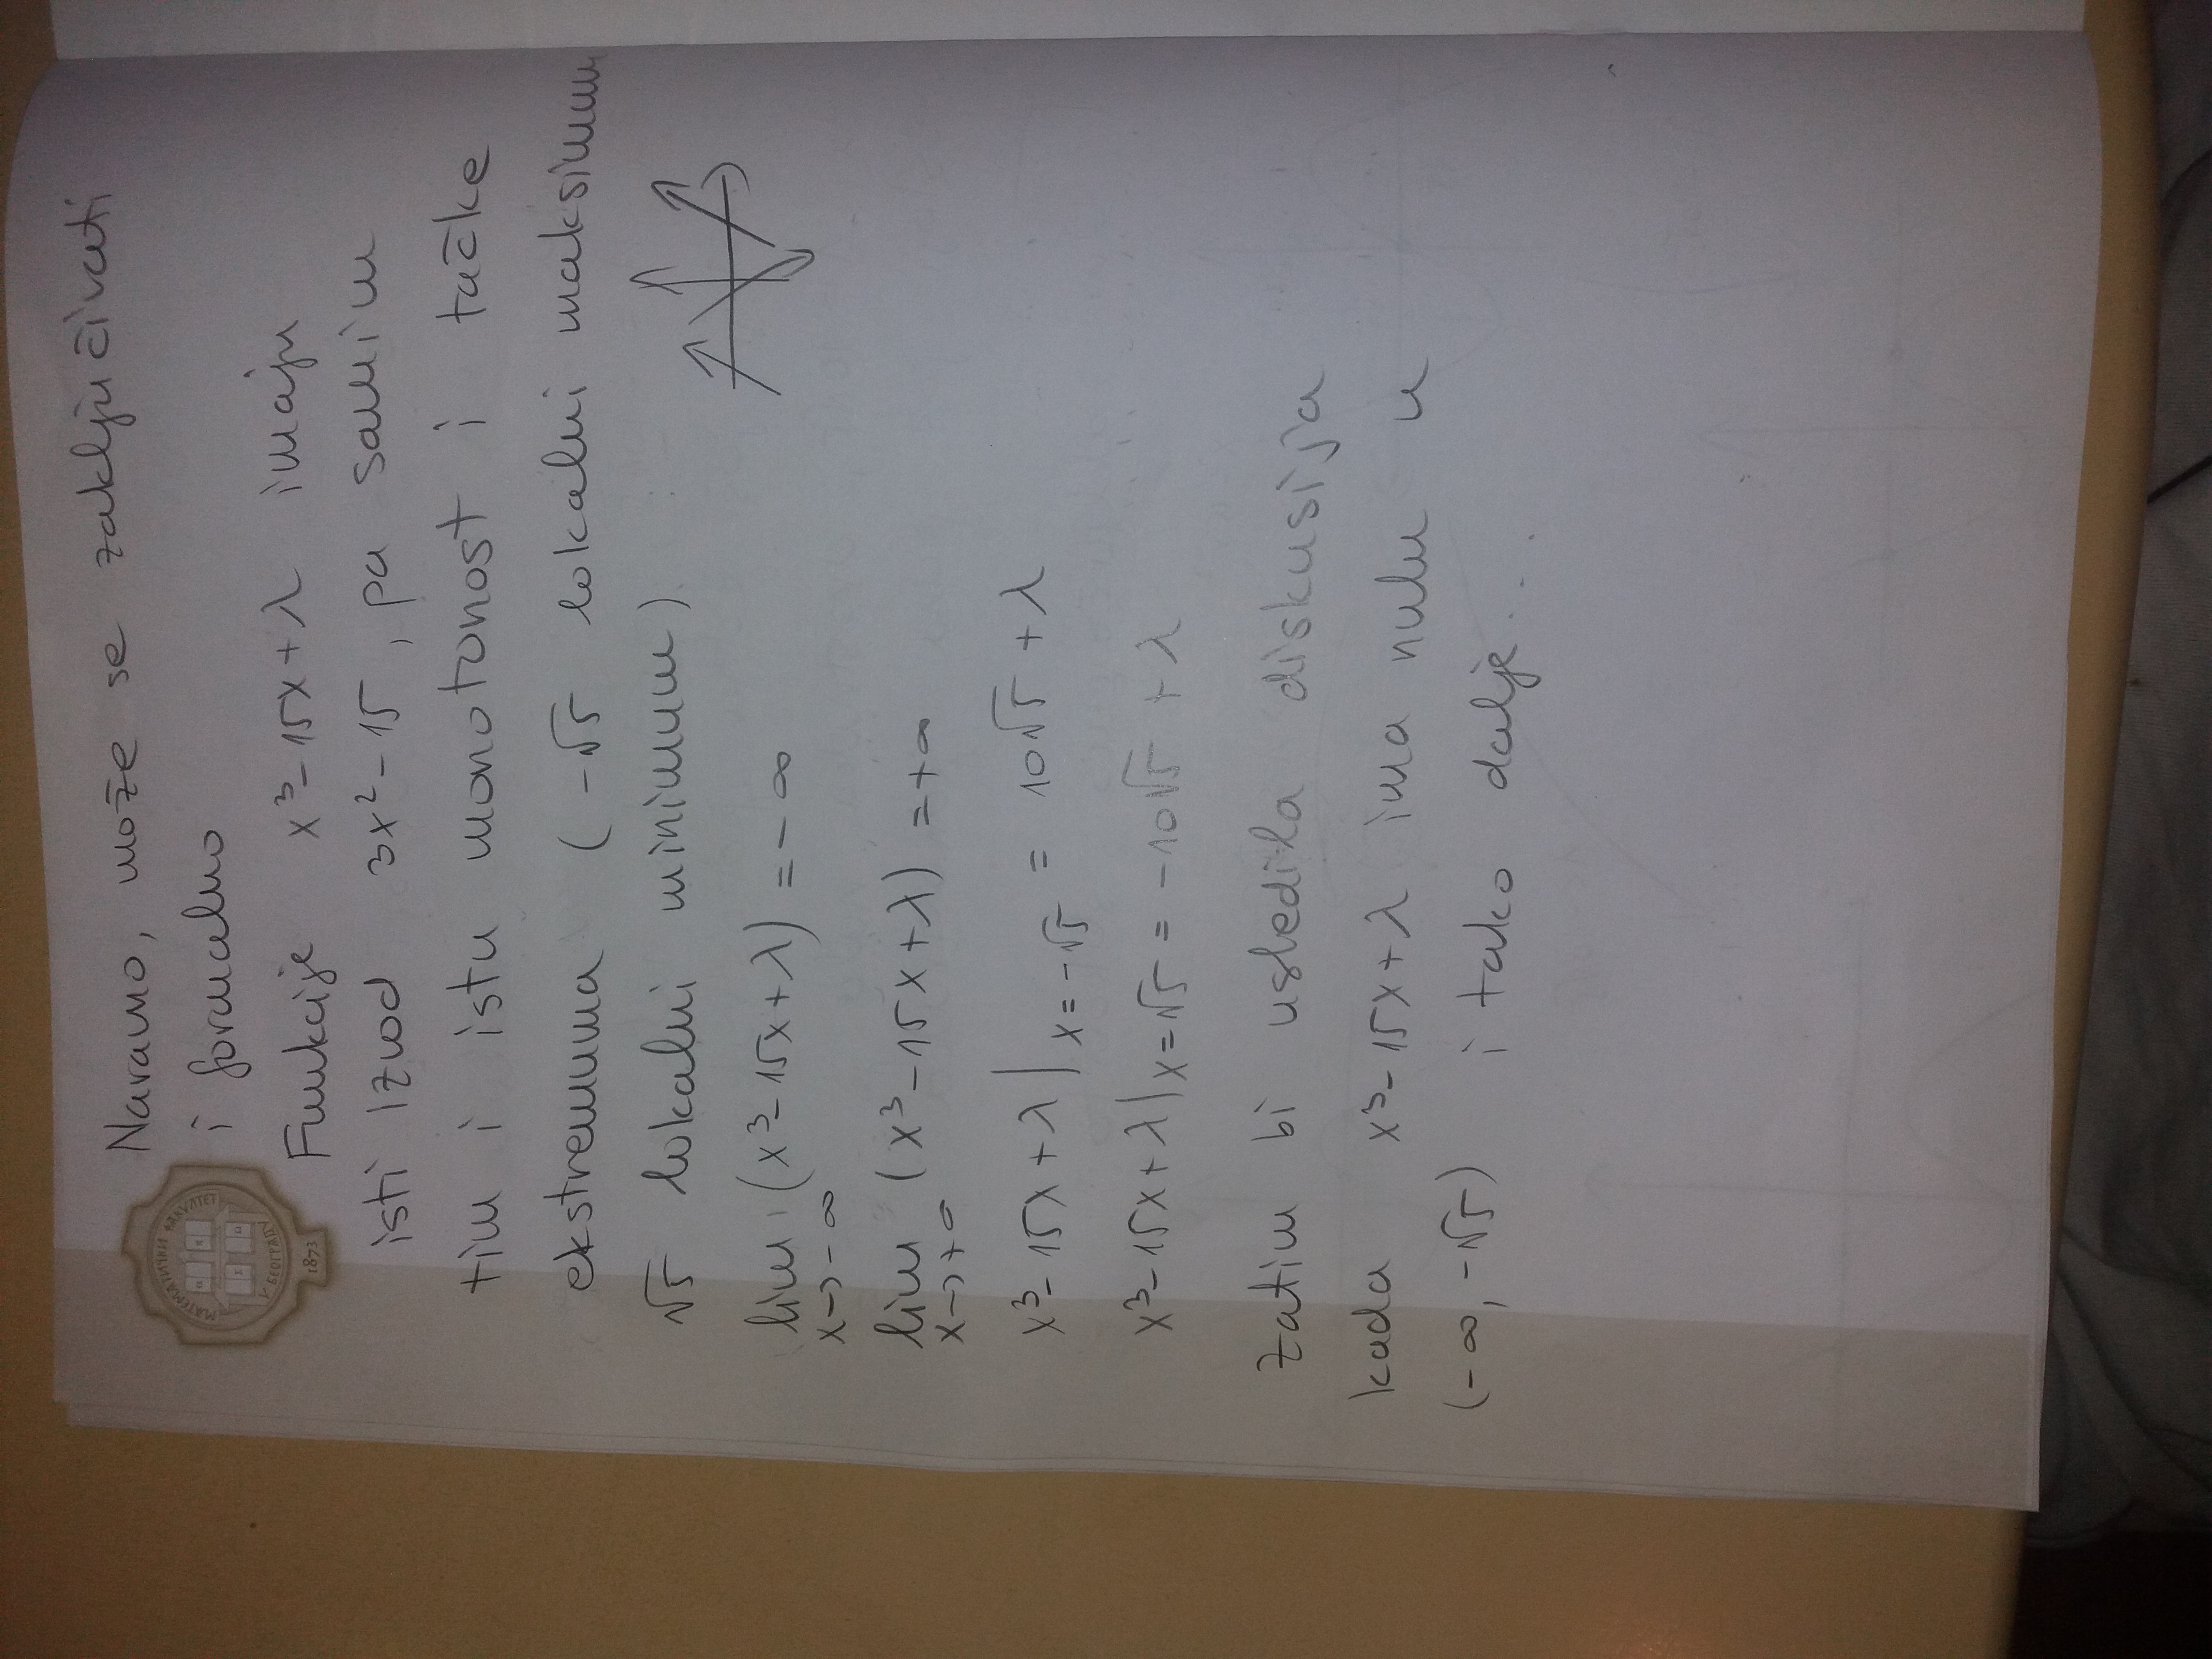 МАТЕМАТИЧКИ ФАКУЛТЕТ
У БЕОГРАДУ
1873
Naravno, može se zaključivati
i formalno
Funkcije x³-15x+λ imaju
isti izvod 3x²-15, pa samim
tim i istu monotonost i tačke
ekstremuma (-√5 lokalni maksimum
√5 lokalni minimum)
lim (x³-15x+λ) = -∞
x→-∞
lim (x³-15x+λ) = +∞
x→+∞
x³-15x+λ|x=-√5 = 10√5+λ
x³-15x+λ|x=√5 = -10√5+λ
Zatim bi usledila diskusija
kada x³-15x+λ ima nulu u
(-∞,-√5) i tako dalje...